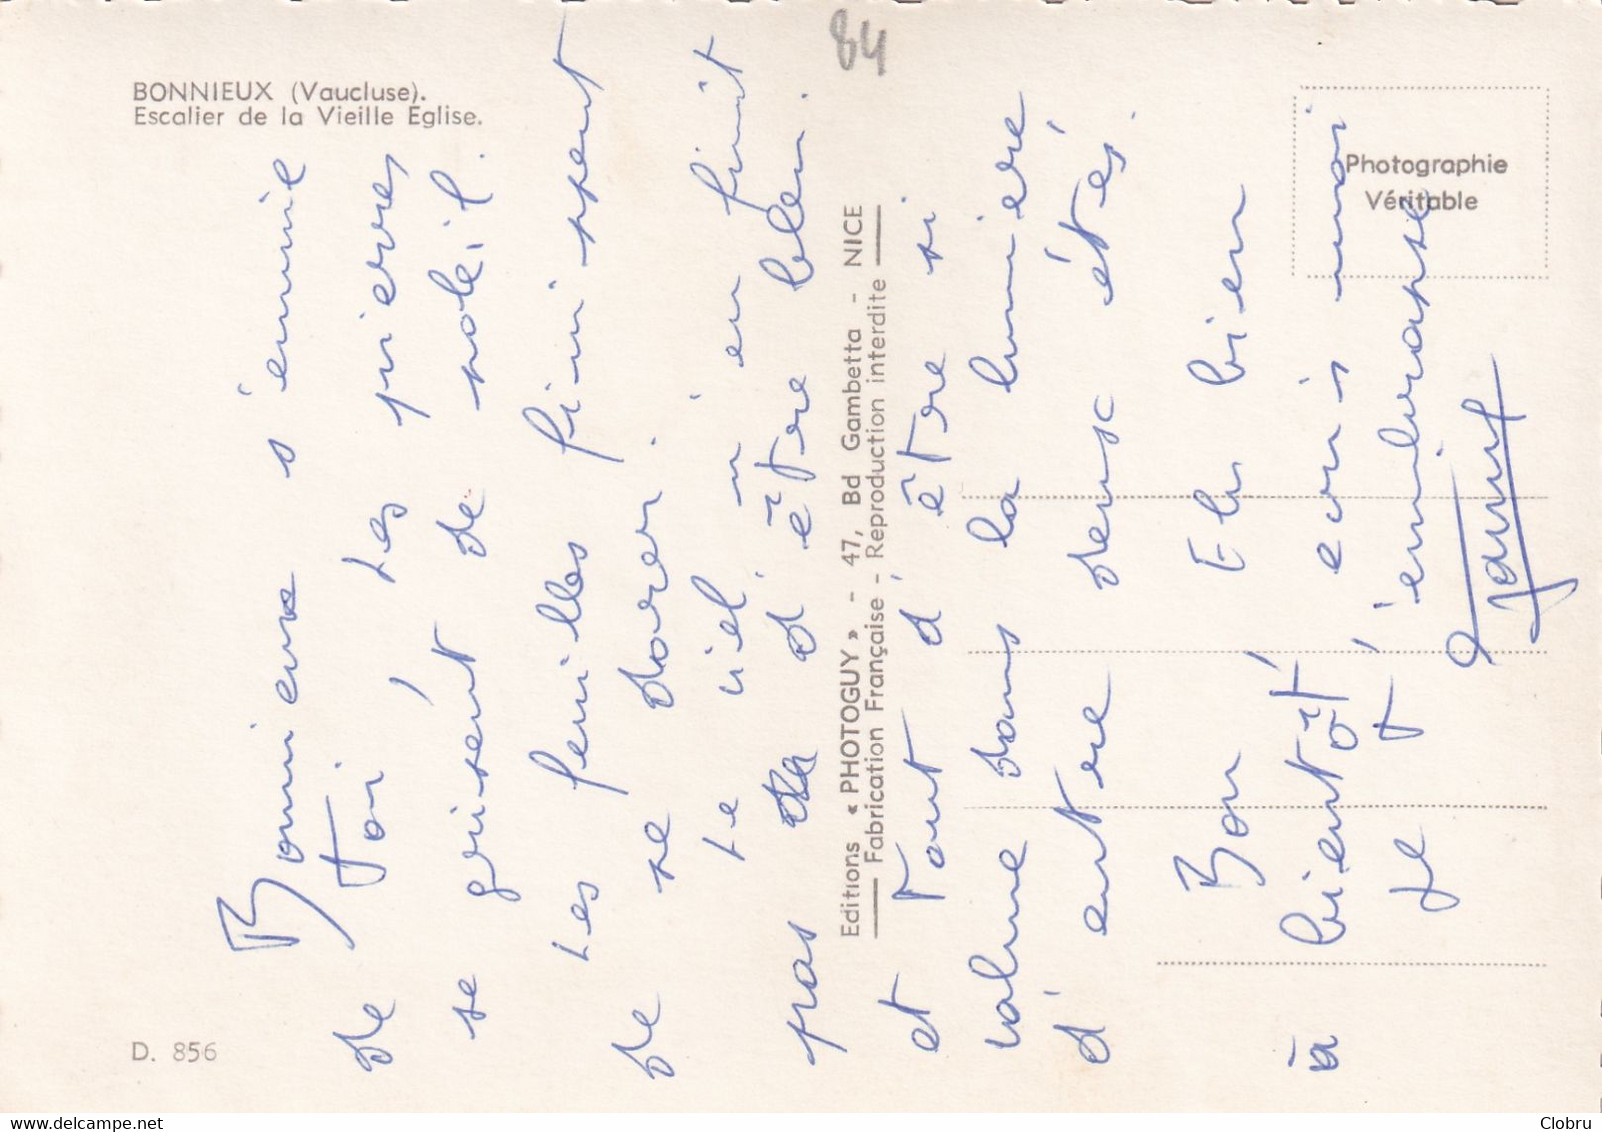 BONNIEUX (Vaucluse).
Escalier de la Vieille Eglise.
84
Photographie
Véritable
Editions « PHOTOGUY » - 47, Bd Gambetta - NICE
Fabrication Française - Reproduction interdite
D. 856
Bonnieux s'ennuie
de toi, Les pierres
se grisent de soleil.
Les feuilles finissent
de se dorer.
Le ciel n'en finit
pas d'être bleu.
et Tout d'être si
calme dans la lumière
d'entre deux étés.
Bon Eh bien
à bientôt écris moi
Je t'embrasse
Clobru